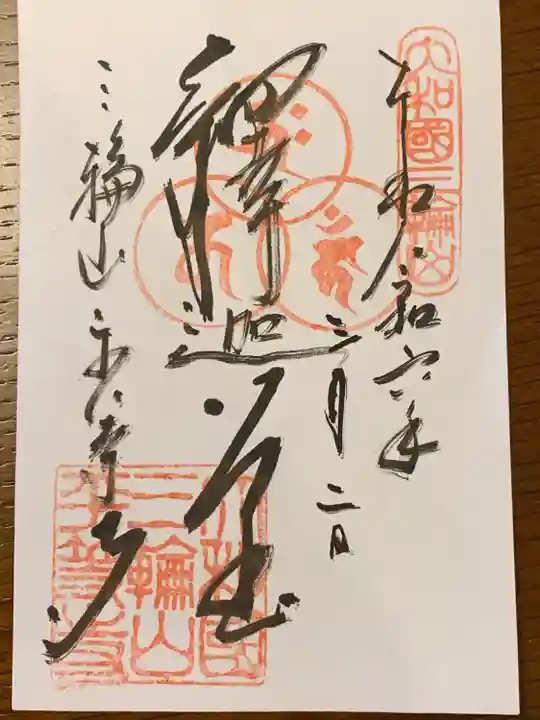 大和國三輪山
奉拝 令和六年
三月二日
釋迦堂
三輪山 平等寺
大和國
三輪山
平等寺